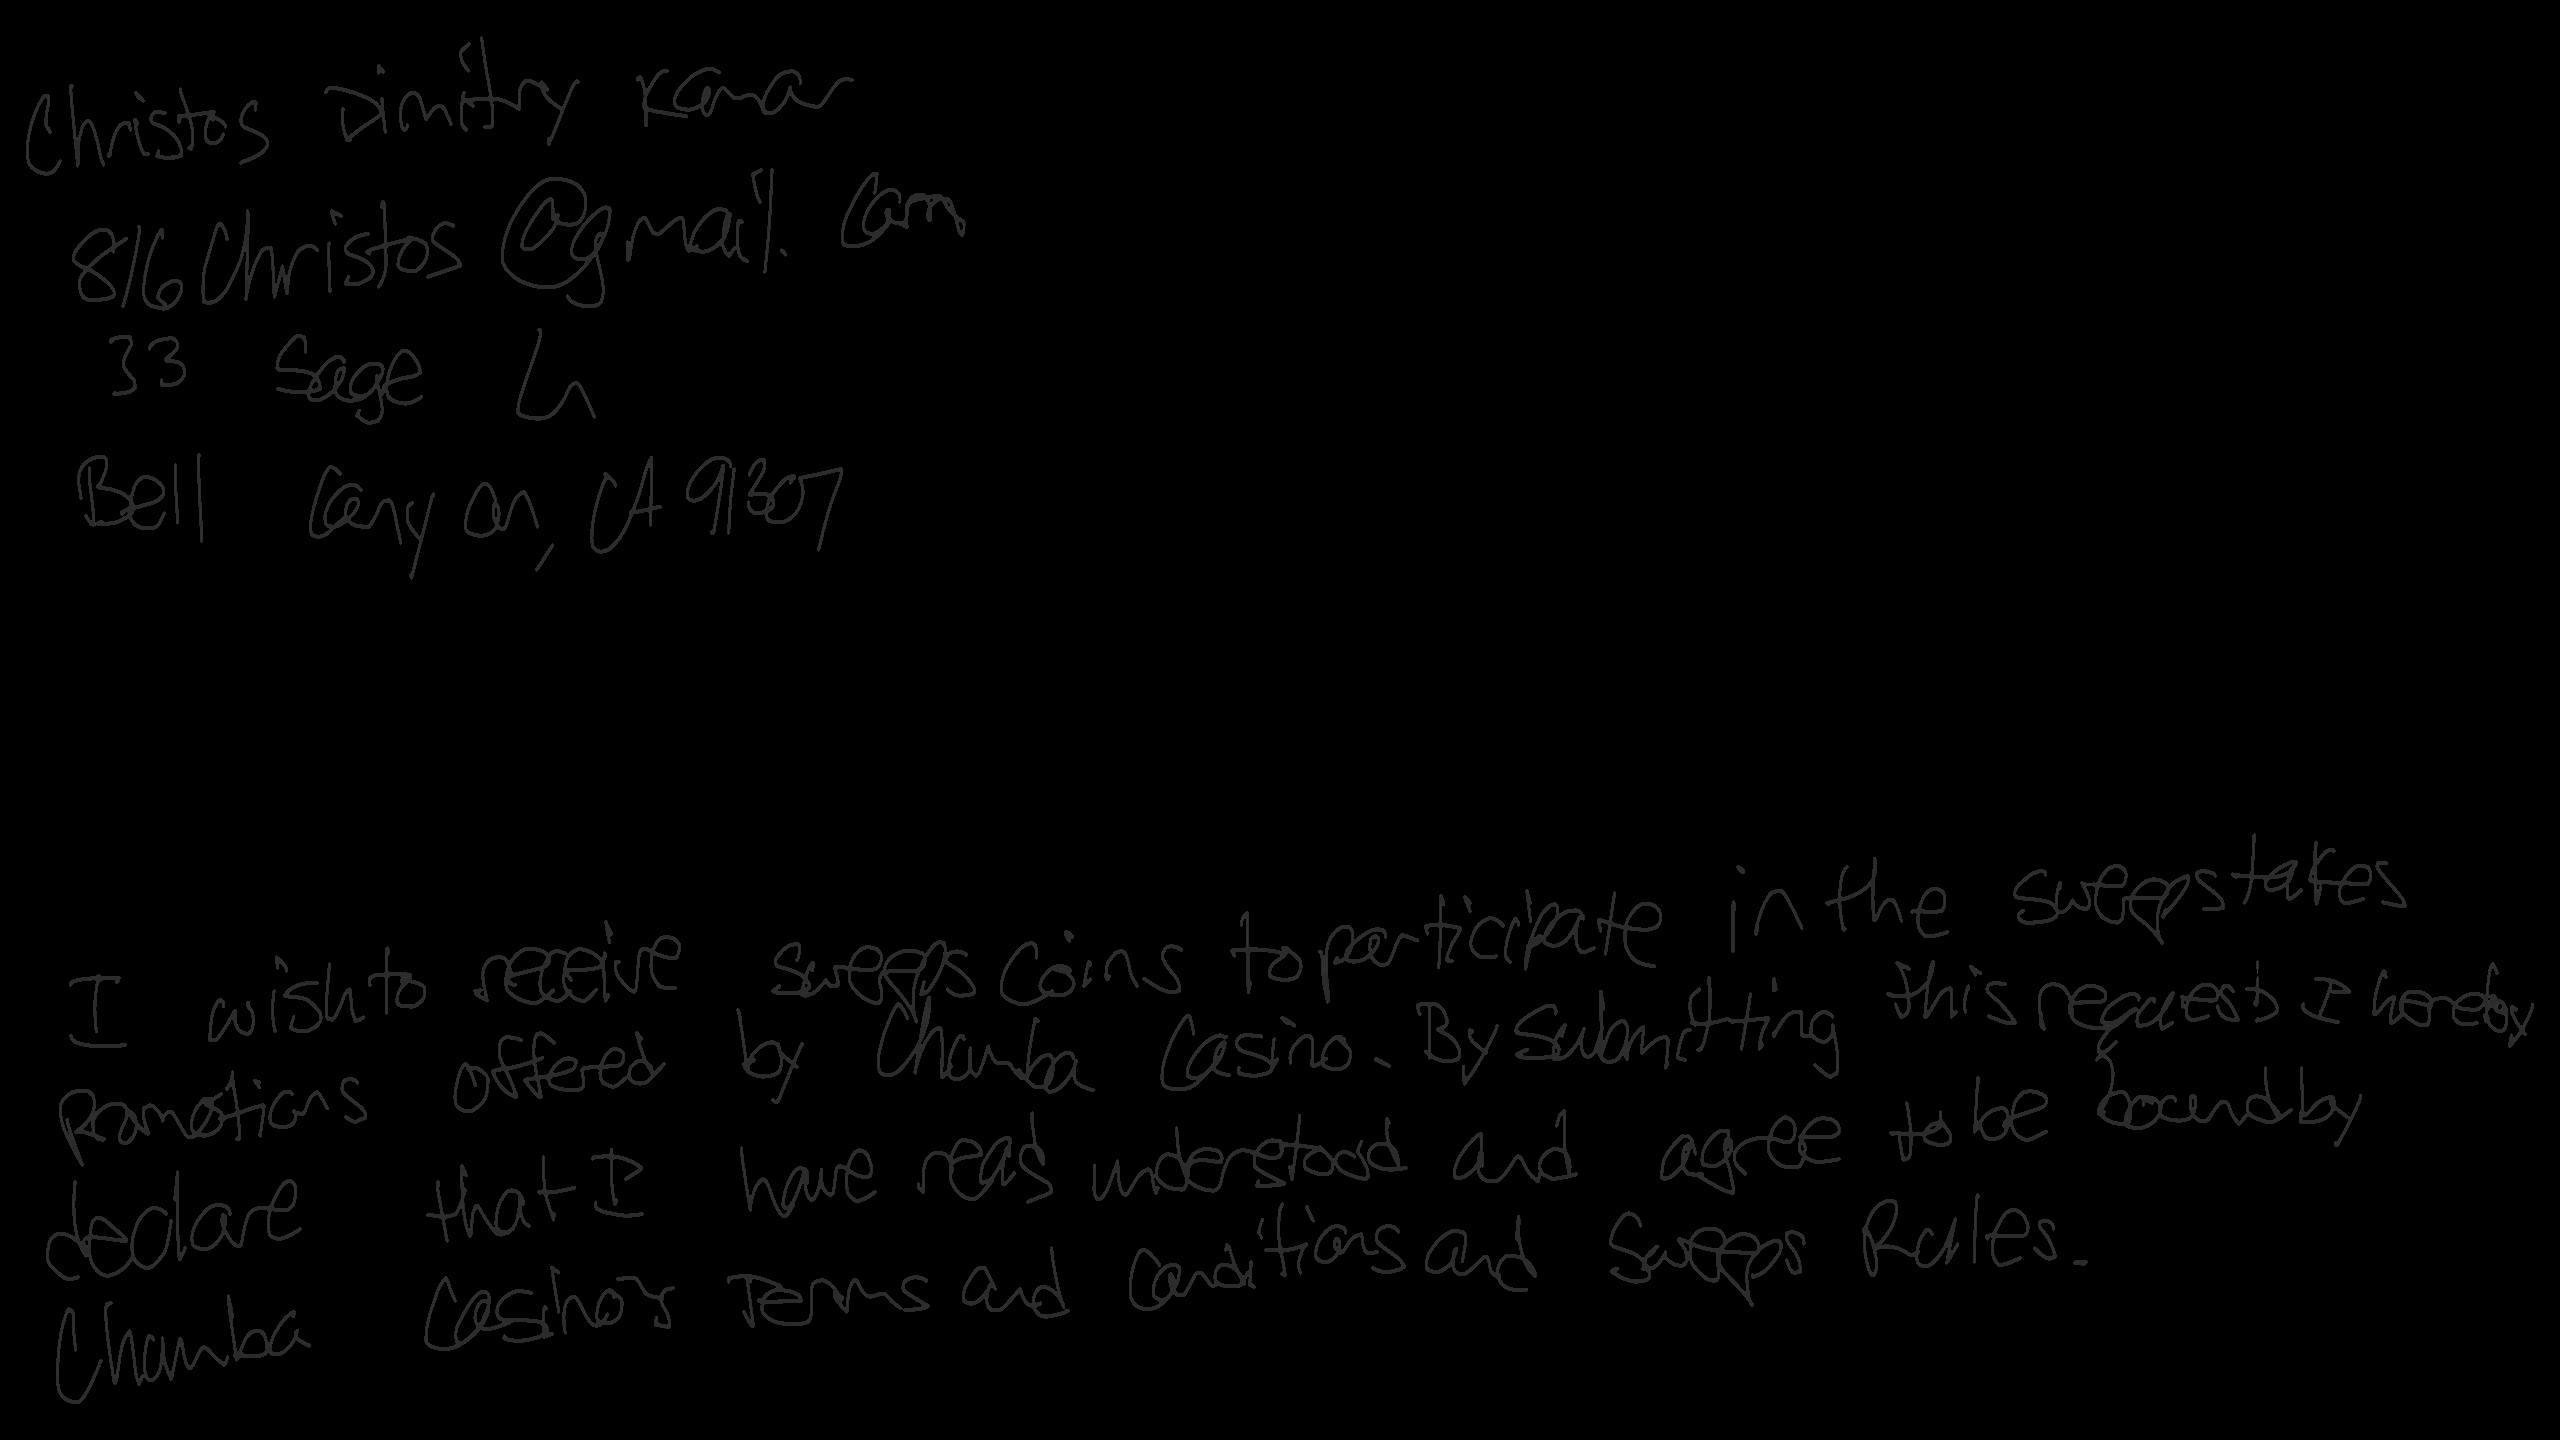 Christos Dimitry Kamar
816Christos@gmail.com
33 Sage Ln
Bell Canyon, CA 91307
I wish to receive sweeps coins to participate in the sweepstakes
promotions offered by Chumba Casino. By submitting this request I hereby
declare that I have read understood and agree to be bound by
Chumba Casino's Terms and Conditions and Sweeps Rules.